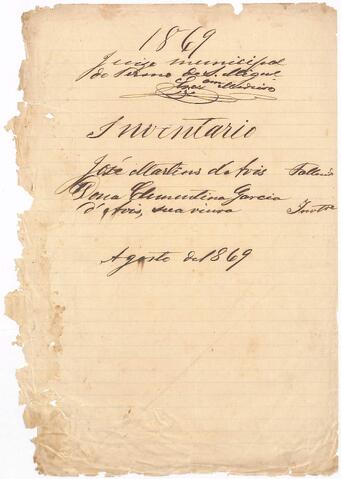 1869
Juizo municipal
do Termo de S. Miguel
Inventario
José Martins d'Avis Fallecido
Dona Clementina Garcia
d'Avis, sua viuva Invte
Agosto de 1869